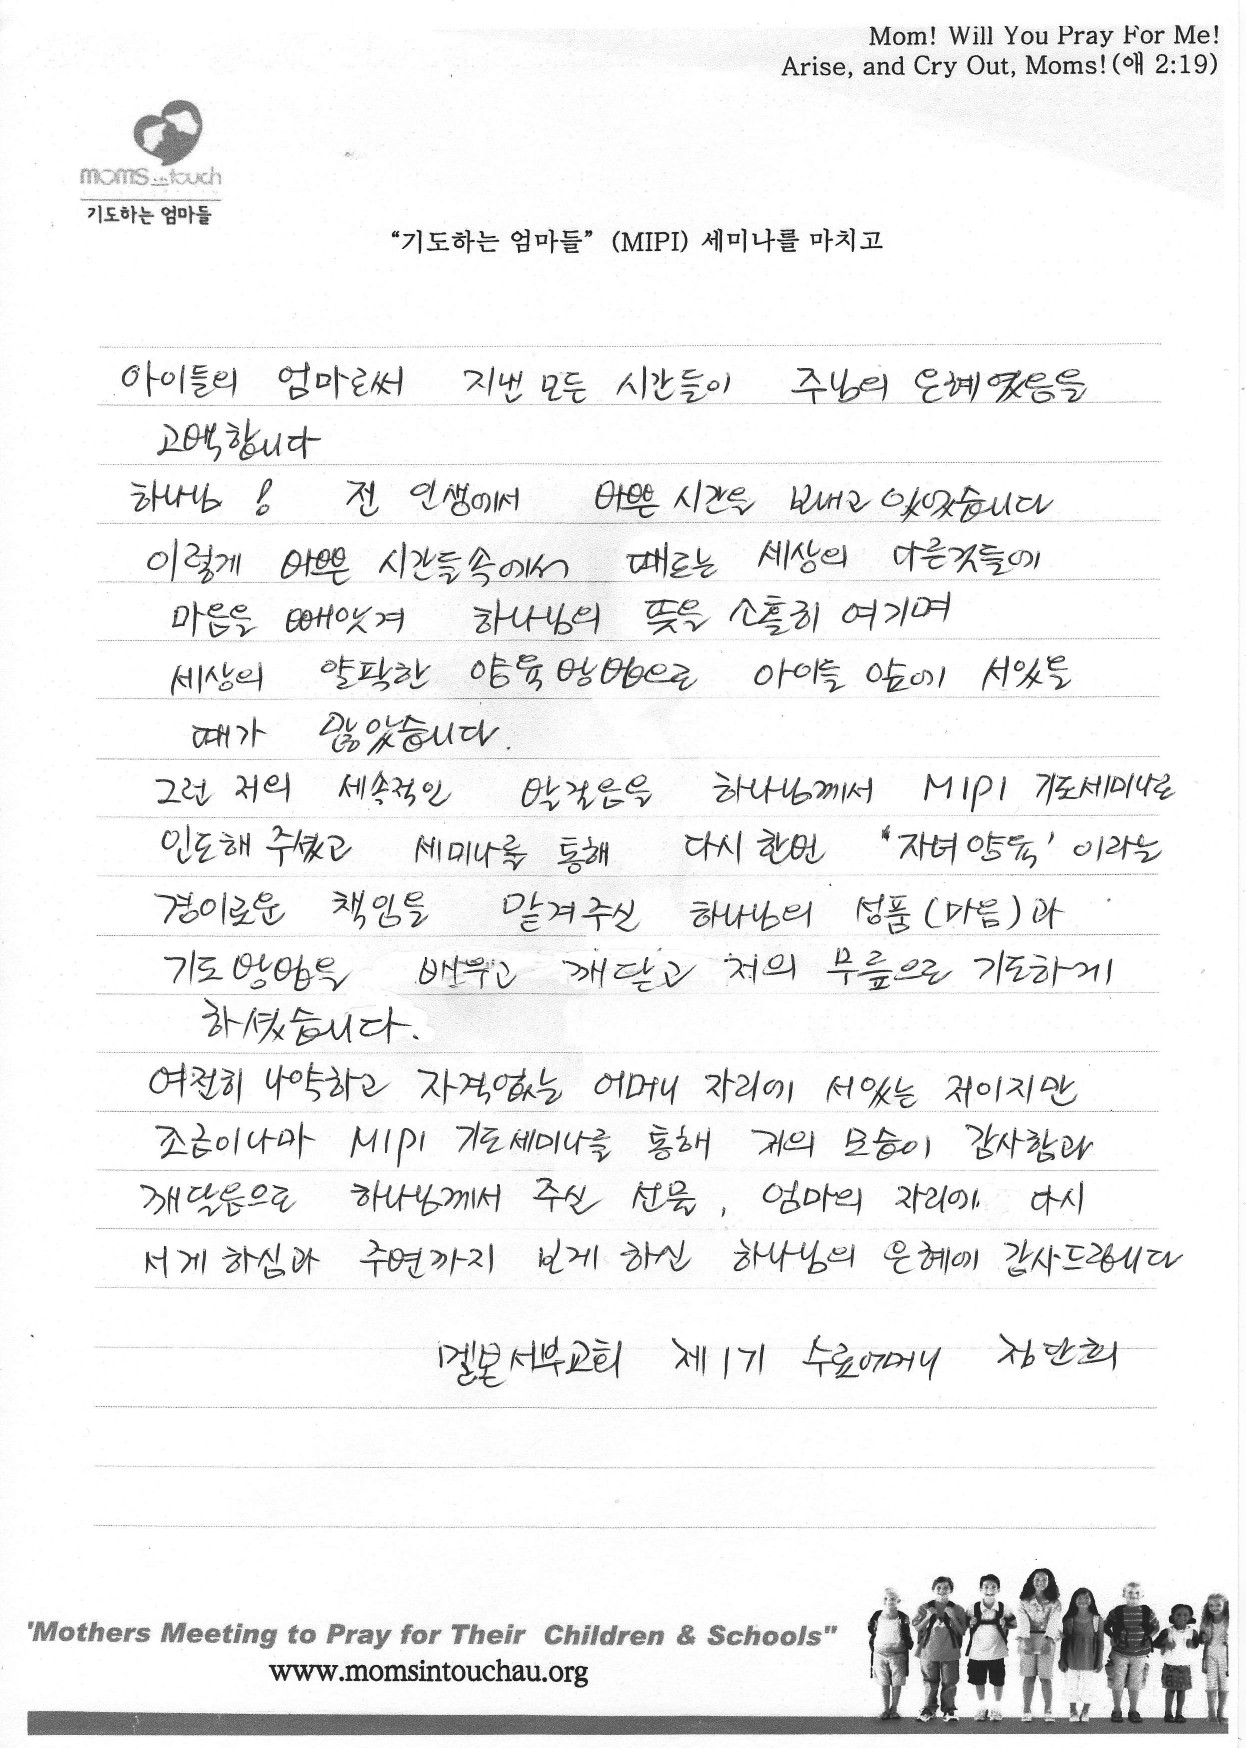 Mom! Will You Pray For Me!
Arise, and Cry Out, Moms!(애 2:19)
moms in touch
기도하는 엄마들
“기도하는 엄마들” (MIPI) 세미나를 마치고
아이들의 엄마로써 지낸 모든 시간들이 주님의 은혜였음을
고백합니다
하나님! 전 인생에서 바쁜 시간을 보내고 있었습니다
이렇게 바쁜 시간들속에서 때로는 세상의 다른것들에
마음을 빼앗겨 하나님의 뜻을 소홀히 여기며
세상의 얄팍한 양육 방법으로 아이들 앞에 서있을
때가 많았습니다.
그런 저의 세속적인 발걸음을 하나님께서 MIPI 기도세미나로
인도해 주셨고 세미나를 통해 다시 한번 '자녀 양육' 이라는
경이로운 책임을 맡겨주신 하나님의 성품(마음)과
기도 방법을 배우고 깨닫고 저의 무릎으로 기도하게
하셨습니다.
여전히 나약하고 자격없는 어머니 자리에 서있는 저이지만
조금이나마 MIPI 기도세미나를 통해 저의 모습이 감사함과
깨달음으로 하나님께서 주신 선물, 엄마의 자리에 다시
서게 하심과 주변까지 보게 하신 하나님의 은혜에 감사드립니다
멜본서부교회 제1기 수료어머니 장단희
'Mothers Meeting to Pray for Their Children & Schools"
www.momsintouchau.org